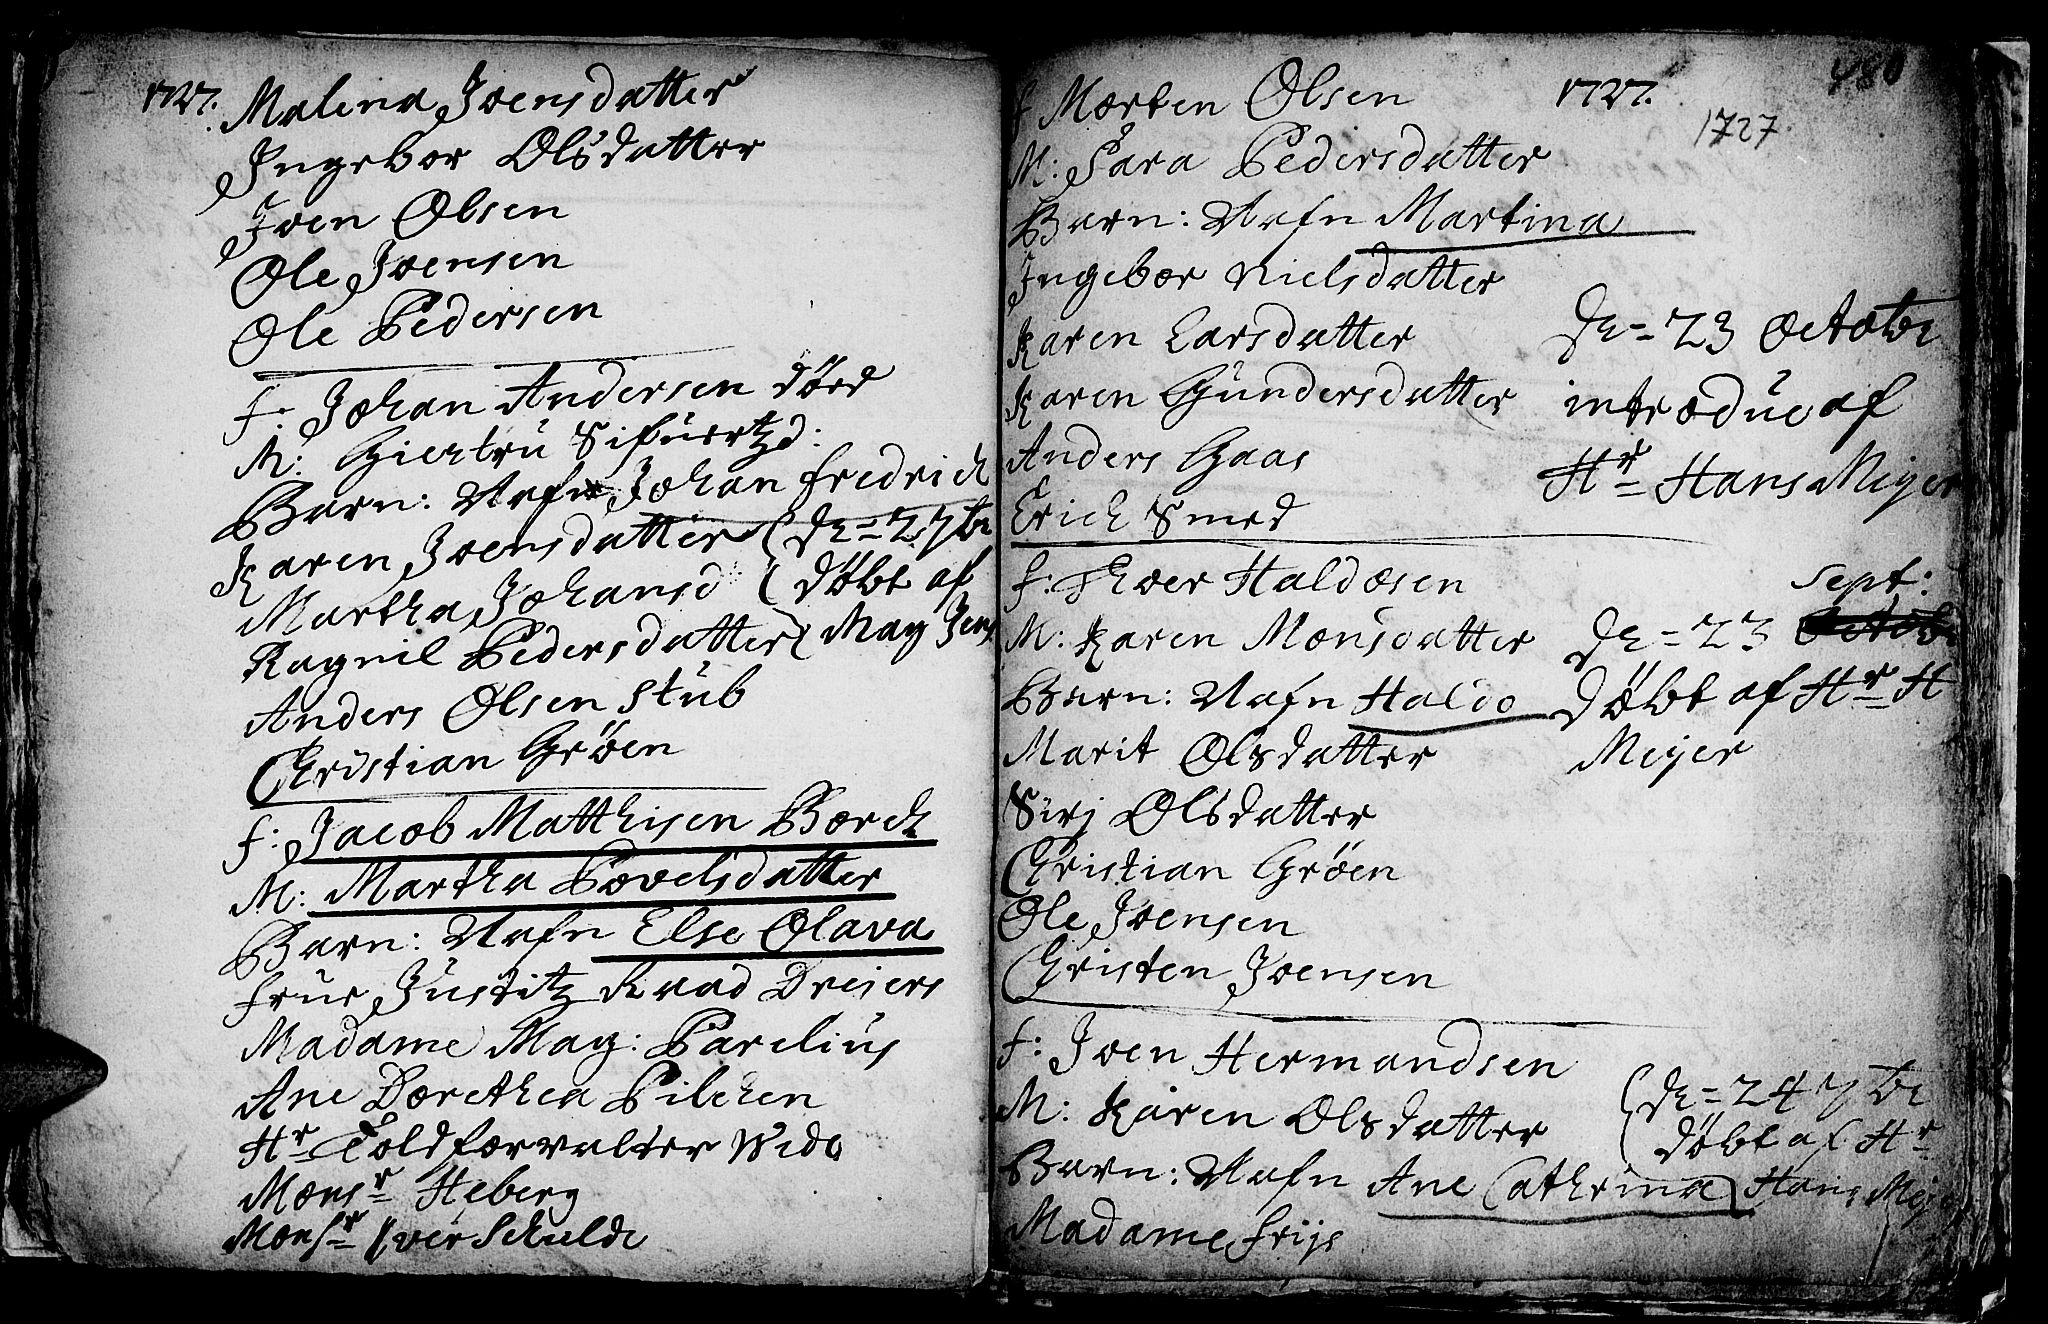 1727. Malena Joensdatter
Ingebor Olsdatter
Joen Olsen
Ole Joensen
Ole Pedersen
f: Johan Andersen død
M: Giertru Sifuertzd:
Barn: Nafn Johan Fredrich
Karen Joensdatter
Martha Johansd:
Ragnil Pedersdatter
d = 27 7br
Døbt af
Mag Jens
Anders Olsen Stüb
Christian Gröen
f: Jacob Matthisen Borch
M: Martha Povelsdatter
Barn: Nafn Else Olava
Frue Justitz Raad Dreiers
Madame Mag: Parelius
Ane Dorethea Pilchen
Hr Toldforvalter Wide
Monsr Heberg
Monsr Iver Schulde
f Morten Olsen
1727.
480
1727
M: Sara Pedersdatter
Barn: Nafn Martina
Ingebor Nielsdatter
Karen Larsdatter
Karen Gundersdatter
Anders Gaas
Erich Smed
d = 23 Octobr
introduc af
Hr Hans Meyer
f: Thoer Haldosen
M: Karen Monsdatter
Barn: Nafn Haldo
Sept:
d = 23 Octobr
Døbt af Hr H
Meyer
Marit Olsdatter
Sirj Olsdatter
Christian Gröen
Ole Joensen
Christen Joensen
f: Joen Hermandsen
M: Karen Olsdatter
Barn: Nafn Ane Cathrina
d = 24 7br
døbt af Hr
Hans Meye
Madame Friis